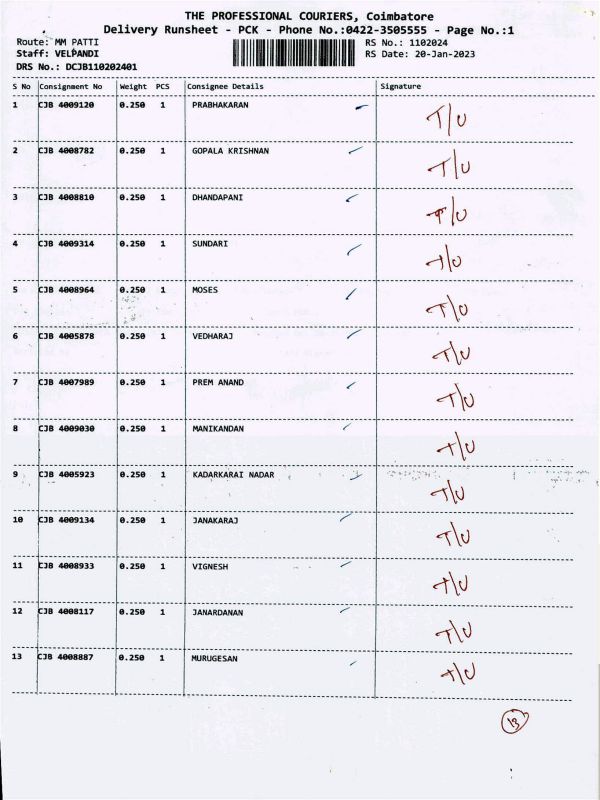 THE PROFESSIONAL COURIERS, Coimbatore
Delivery Runsheet - PCK - Phone No.:0422-3505555 - Page No.:1
Route: MM PATTI RS No.: 1102024
Staff: VELPANDI RS Date: 20-Jan-2023
DRS No.: DCJB110202401
S No Consignment No Weight PCS Consignee Details Signature
1 CJB 4009120 0.250 1 PRABHAKARAN T/U
2 CJB 4008782 0.250 1 GOPALA KRISHNAN T/U
3 CJB 4008810 0.250 1 DHANDAPANI T/U
4 CJB 4009314 0.250 1 SUNDARI T/U
5 CJB 4008964 0.250 1 MOSES T/U
6 CJB 4005878 0.250 1 VEDHARAJ T/U
7 CJB 4007989 0.250 1 PREM ANAND T/U
8 CJB 4009030 0.250 1 MANIKANDAN T/U
9 CJB 4005923 0.250 1 KADARKARAI NADAR T/U
10 CJB 4009134 0.250 1 JANAKARAJ T/U
11 CJB 4008933 0.250 1 VIGNESH T/U
12 CJB 4008117 0.250 1 JANARDANAN T/U
13 CJB 4008887 0.250 1 MURUGESAN T/U
13